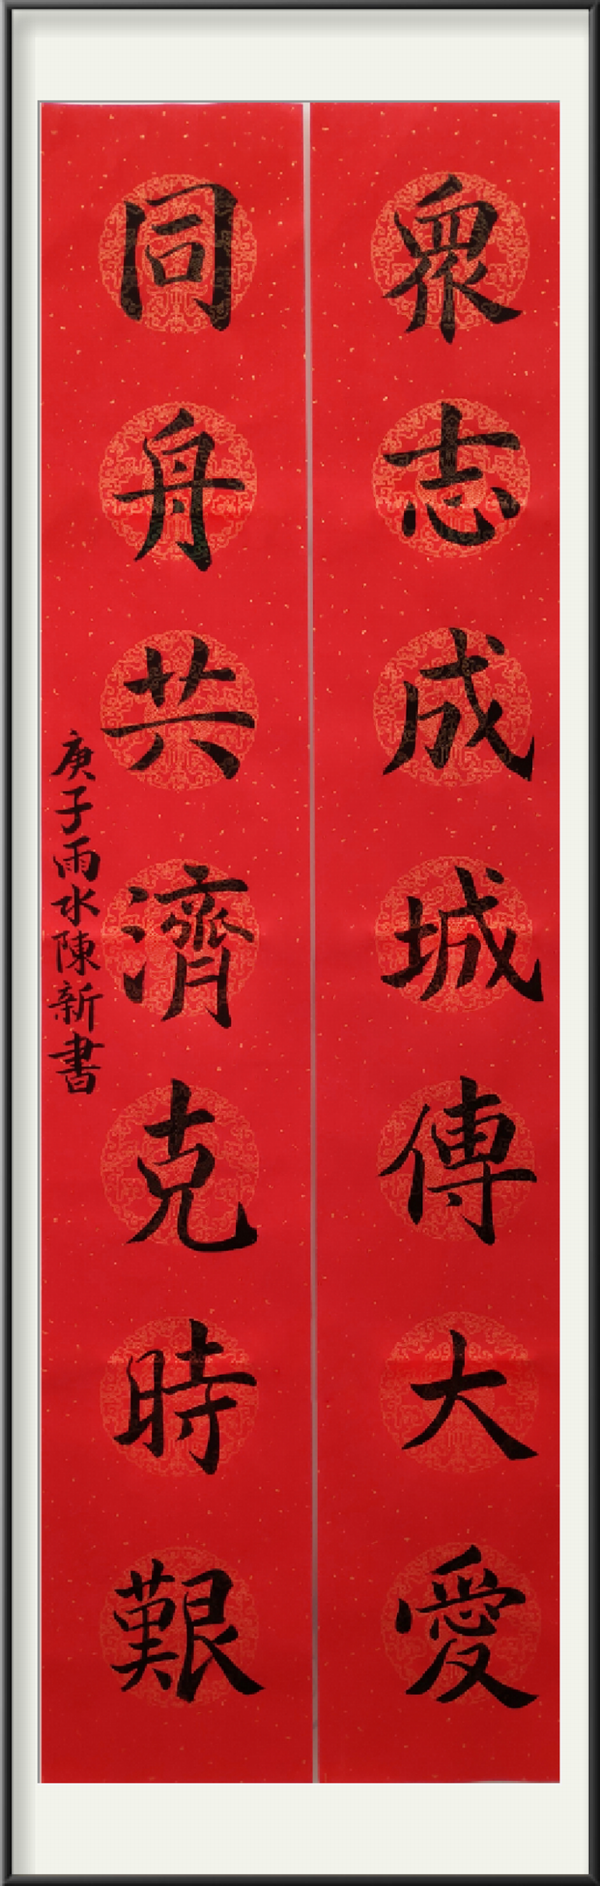 眾志成城傳大愛
同舟共濟克時艱
庚子雨水陳新書